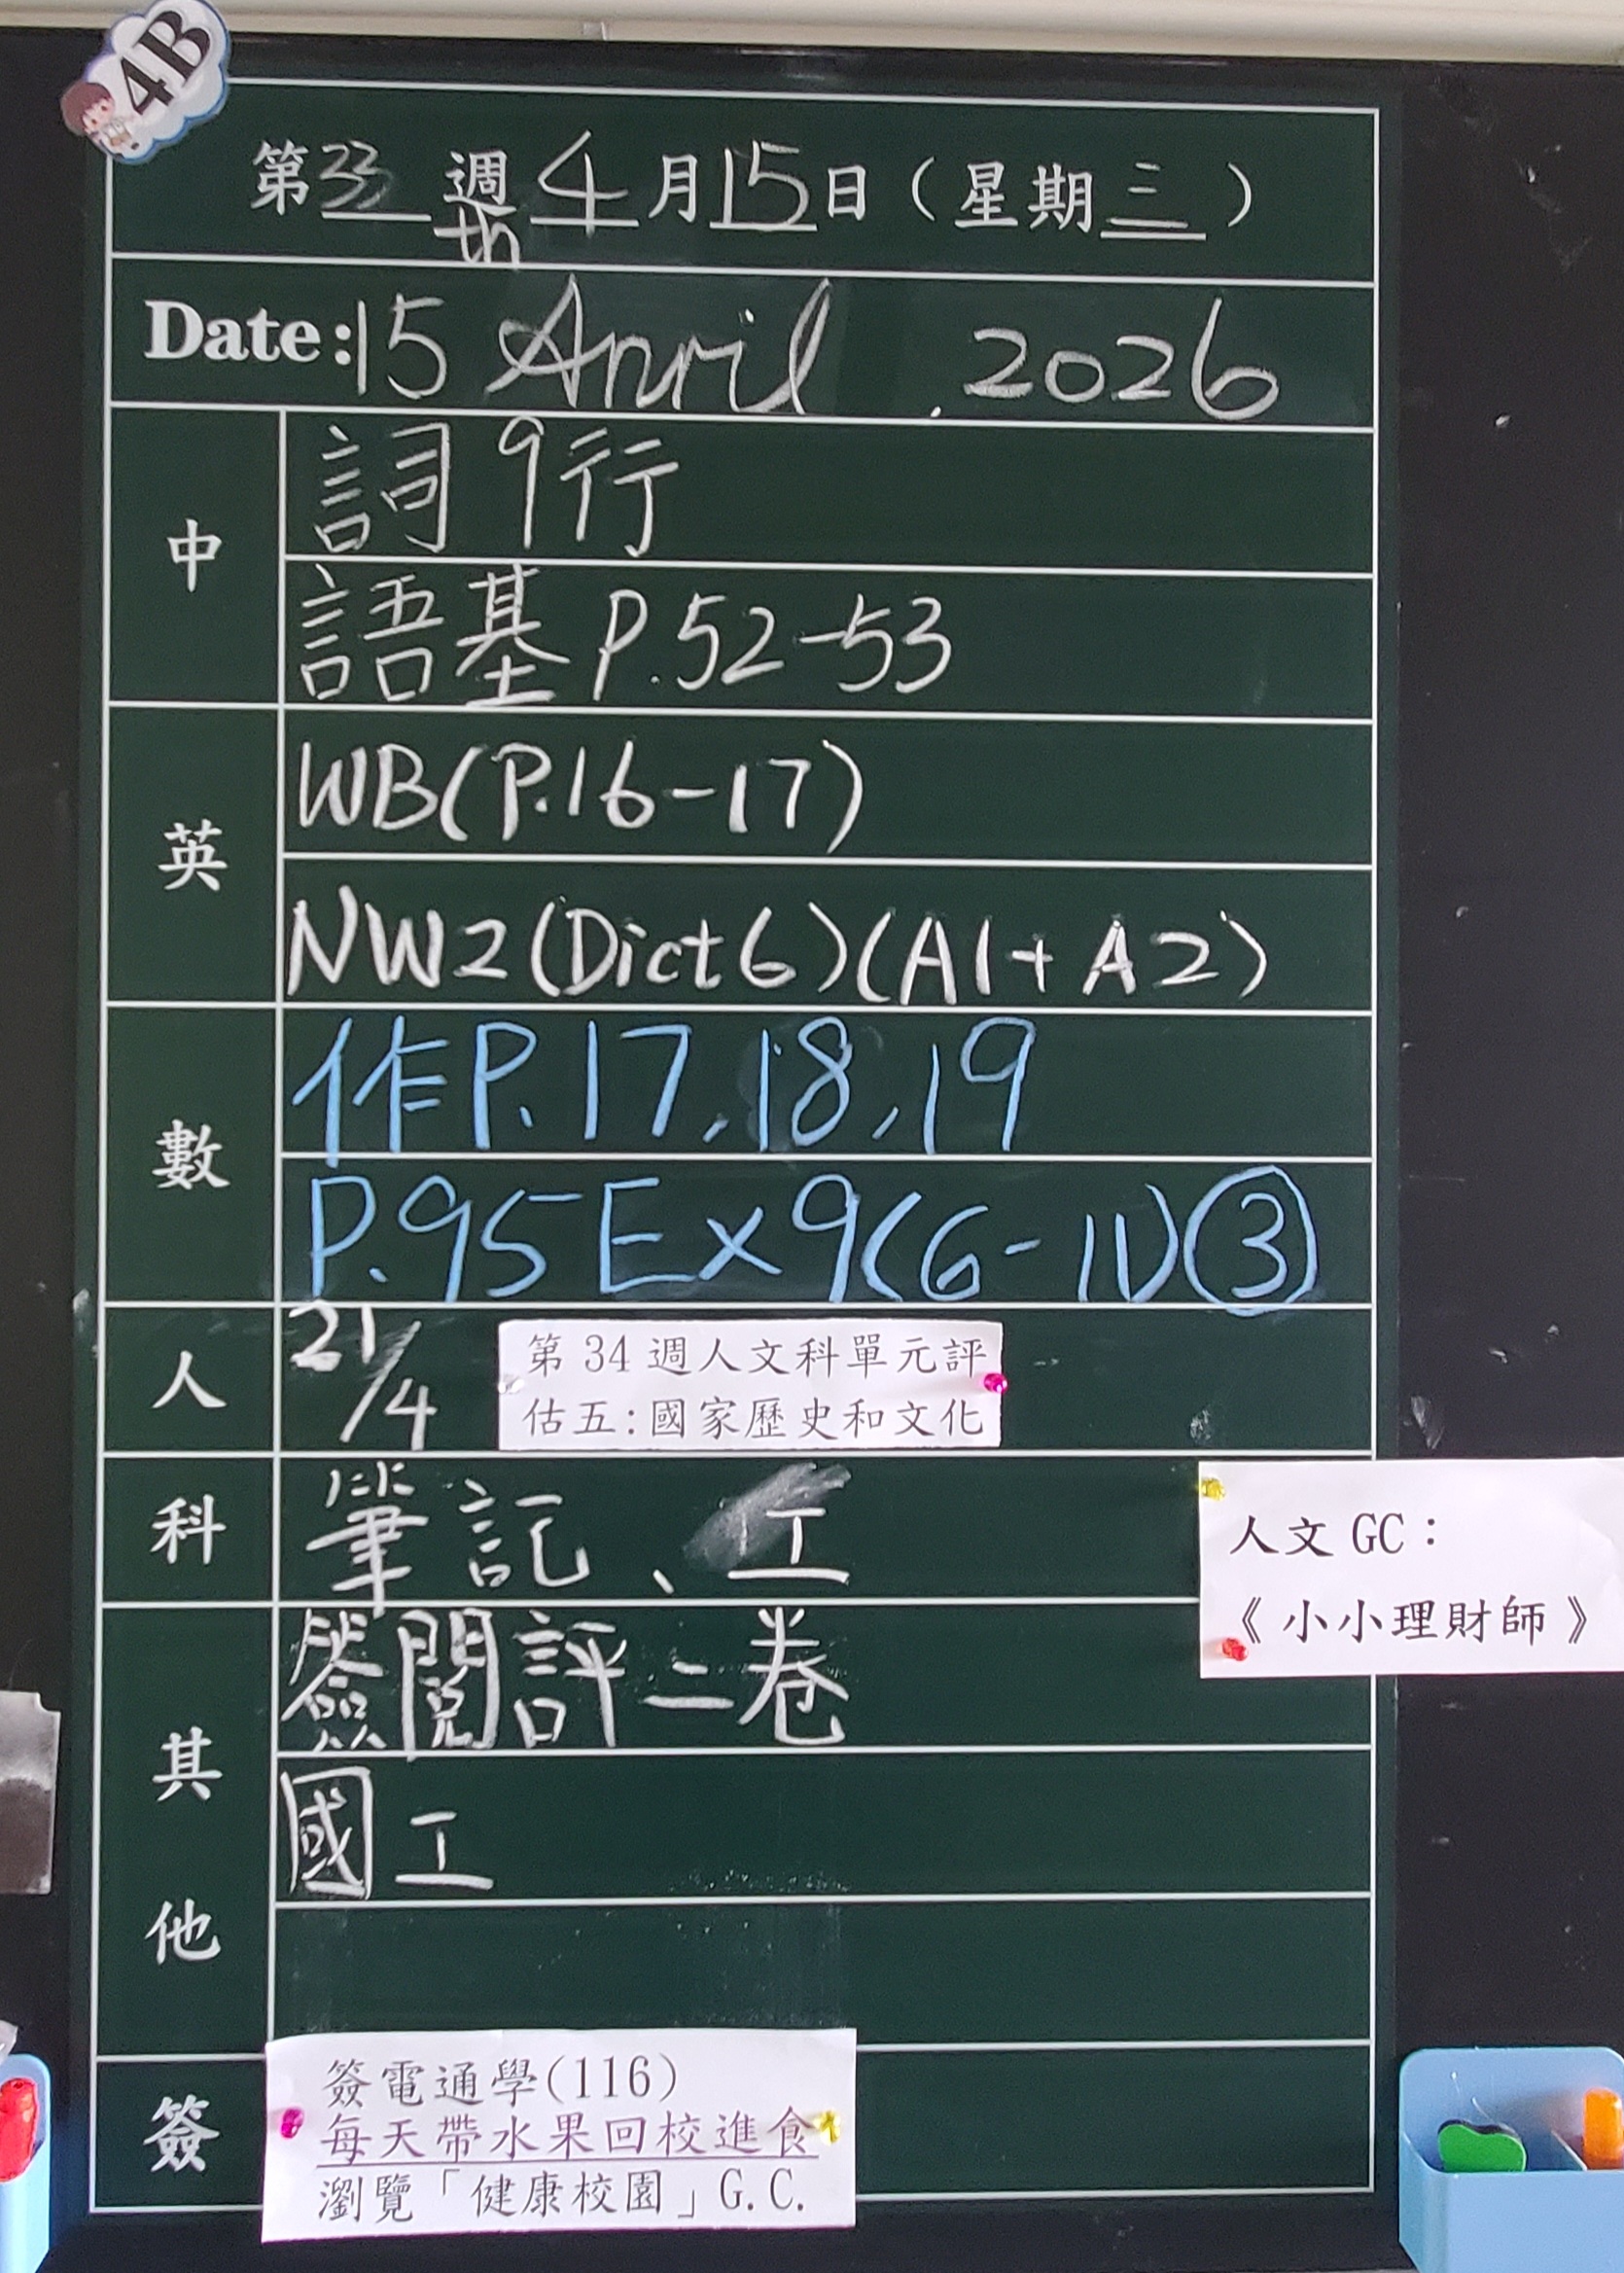 4B
第33週4月15日（星期三）
Date: 15th April, 2026
中
詞9行
語基P.52-53
英
WB(P.16-17)
NW2(Dict6)(A1+A2)
數
作P.17,18,19
P.95Ex9(6-11)③
人
21/4
第34週人文科單元評
估五:國家歷史和文化
科
筆記、工
人文GC：
《小小理財師》
其他
簽閱評二卷
國工
簽
簽電通學(116)
每天帶水果回校進食
瀏覽「健康校園」G.C.